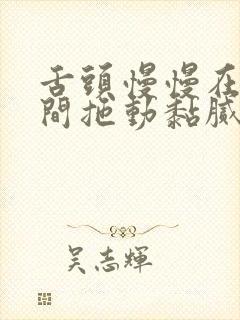 舌頭慢慢在
間拖動黏膩
吳志輝